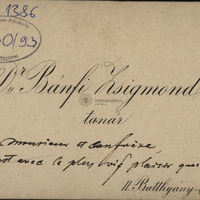 1386
50/93
Dr Bánfi Zsigmond
tanár
Monsieur et confrère,
avec le plus vif plaisir que
II. Batthyány-